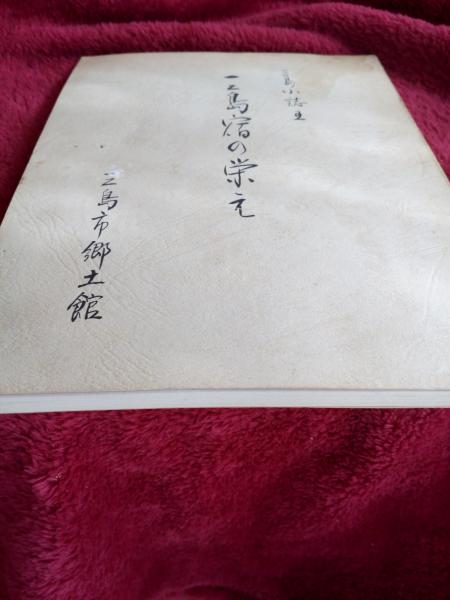 三島小誌
三島宿の栄え
三島市郷土館